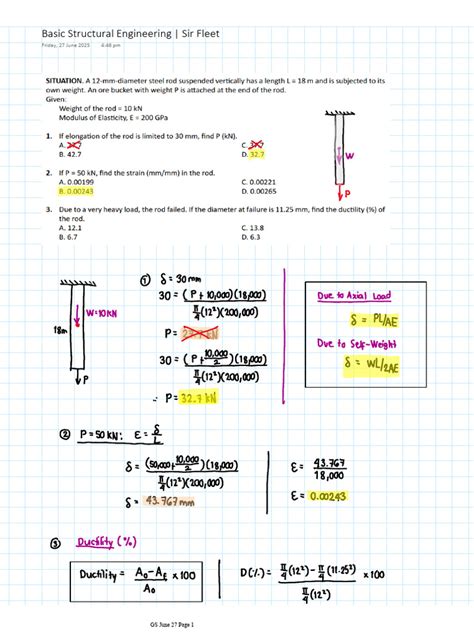 Basic Structural Engineering | Sir Fleet
Friday, 27 June 2025 4:48 pm
SITUATION. A 12-mm-diameter steel rod suspended vertically has a length L = 18 m and is subjected to its
own weight. An ore bucket with weight P is attached at the end of the rod.
Given:
Weight of the rod = 10 kN
Modulus of Elasticity, E = 200 GPa
1. If elongation of the rod is limited to 30 mm, find P (kN).
A.
C.
B. 42.7
D. 32.7
2. If P = 50 kN, find the strain (mm/mm) in the rod.
A. 0.00199
C. 0.00221
B. 0.00243
D. 0.00265
3. Due to a very heavy load, the rod failed. If the diameter at failure is 11.25 mm, find the ductility (%) of
the rod.
A. 12.1
C. 13.8
B. 6.7
D. 6.3
W
P
① δ = 30 mm
30 = (P + 10,000)(18,000)
π/4 (12²)(200,000)
P = 27.7 kN
30 = (P + 10,000/2)(18,000)
π/4 (12²)(200,000)
∴ P = 32.7 kN
W=10 kN
18m
P
Due to Axial Load
δ = PL/AE
Due to Self-Weight
δ = WL/2AE
② P = 50 kN: ε = δ/L
δ = (50,000 + 10,000/2)(18,000)
π/4 (12²)(200,000)
δ = 43.767 mm
ε = 43.767
18,000
ε = 0.00243
③ Ductility (%)
Ductility = Ao - Af x 100
Ao
D(%) = π/4 (12²) - π/4 (11.25²) x 100
π/4 (12²)
GS June 27 Page 1